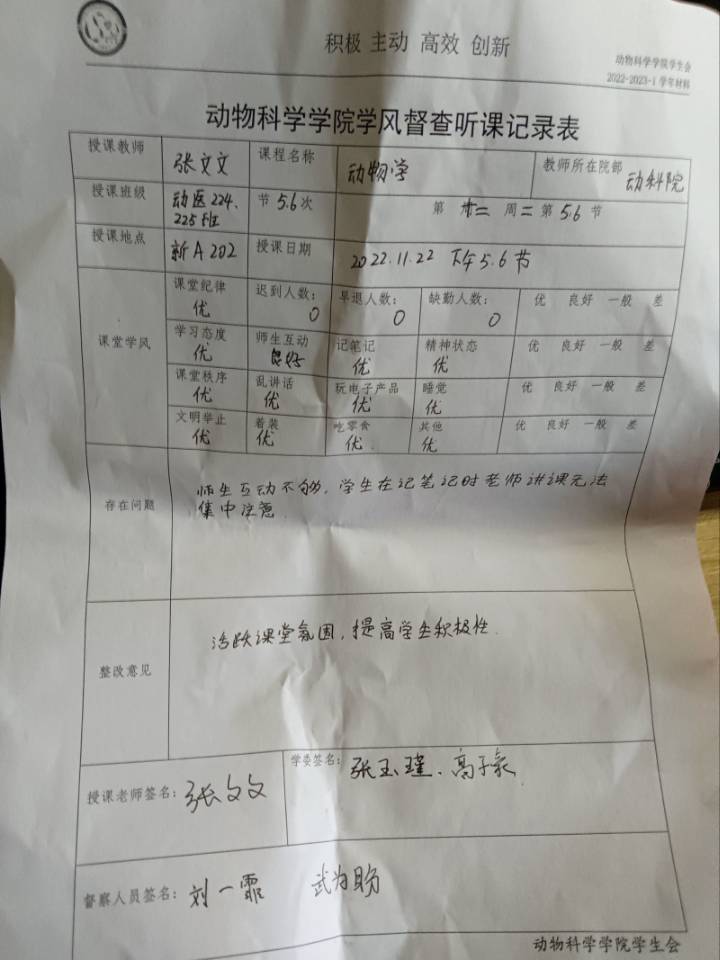 积极 主动 高效 创新
动物科学学院学生会
2022-2023-1 学年材料
动物科学学院学风督查听课记录表
授课教师 张文文 课程名称 动物学 教师所在院部 动科院
授课班级 动医224、225班 节5.6次 第 十二 周二 第 5.6 节
授课地点 新A202 授课日期 2022.11.22 下午5.6节
课堂学风
课堂纪律 优 迟到人数: 0 早退人数: 0 缺勤人数: 0 优 良好 一般 差
学习态度 优 师生互动 良好 记笔记 优 精神状态 优 优 良好 一般 差
课堂秩序 优 乱讲话 优 玩电子产品 优 睡觉 优 优 良好 一般 差
文明举止 优 着装 优 吃零食 优. 其他 优 优 良好 一般 差
存在问题 师生互动不够,学生在记笔记时老师讲课无法
集中注意
整改意见 活跃课堂氛围,提高学生积极性.
授课老师签名: 张文文 学委签名: 张玉瑾、高子豪
督察人员签名: 刘一霏 武为
动物科学学院学生会